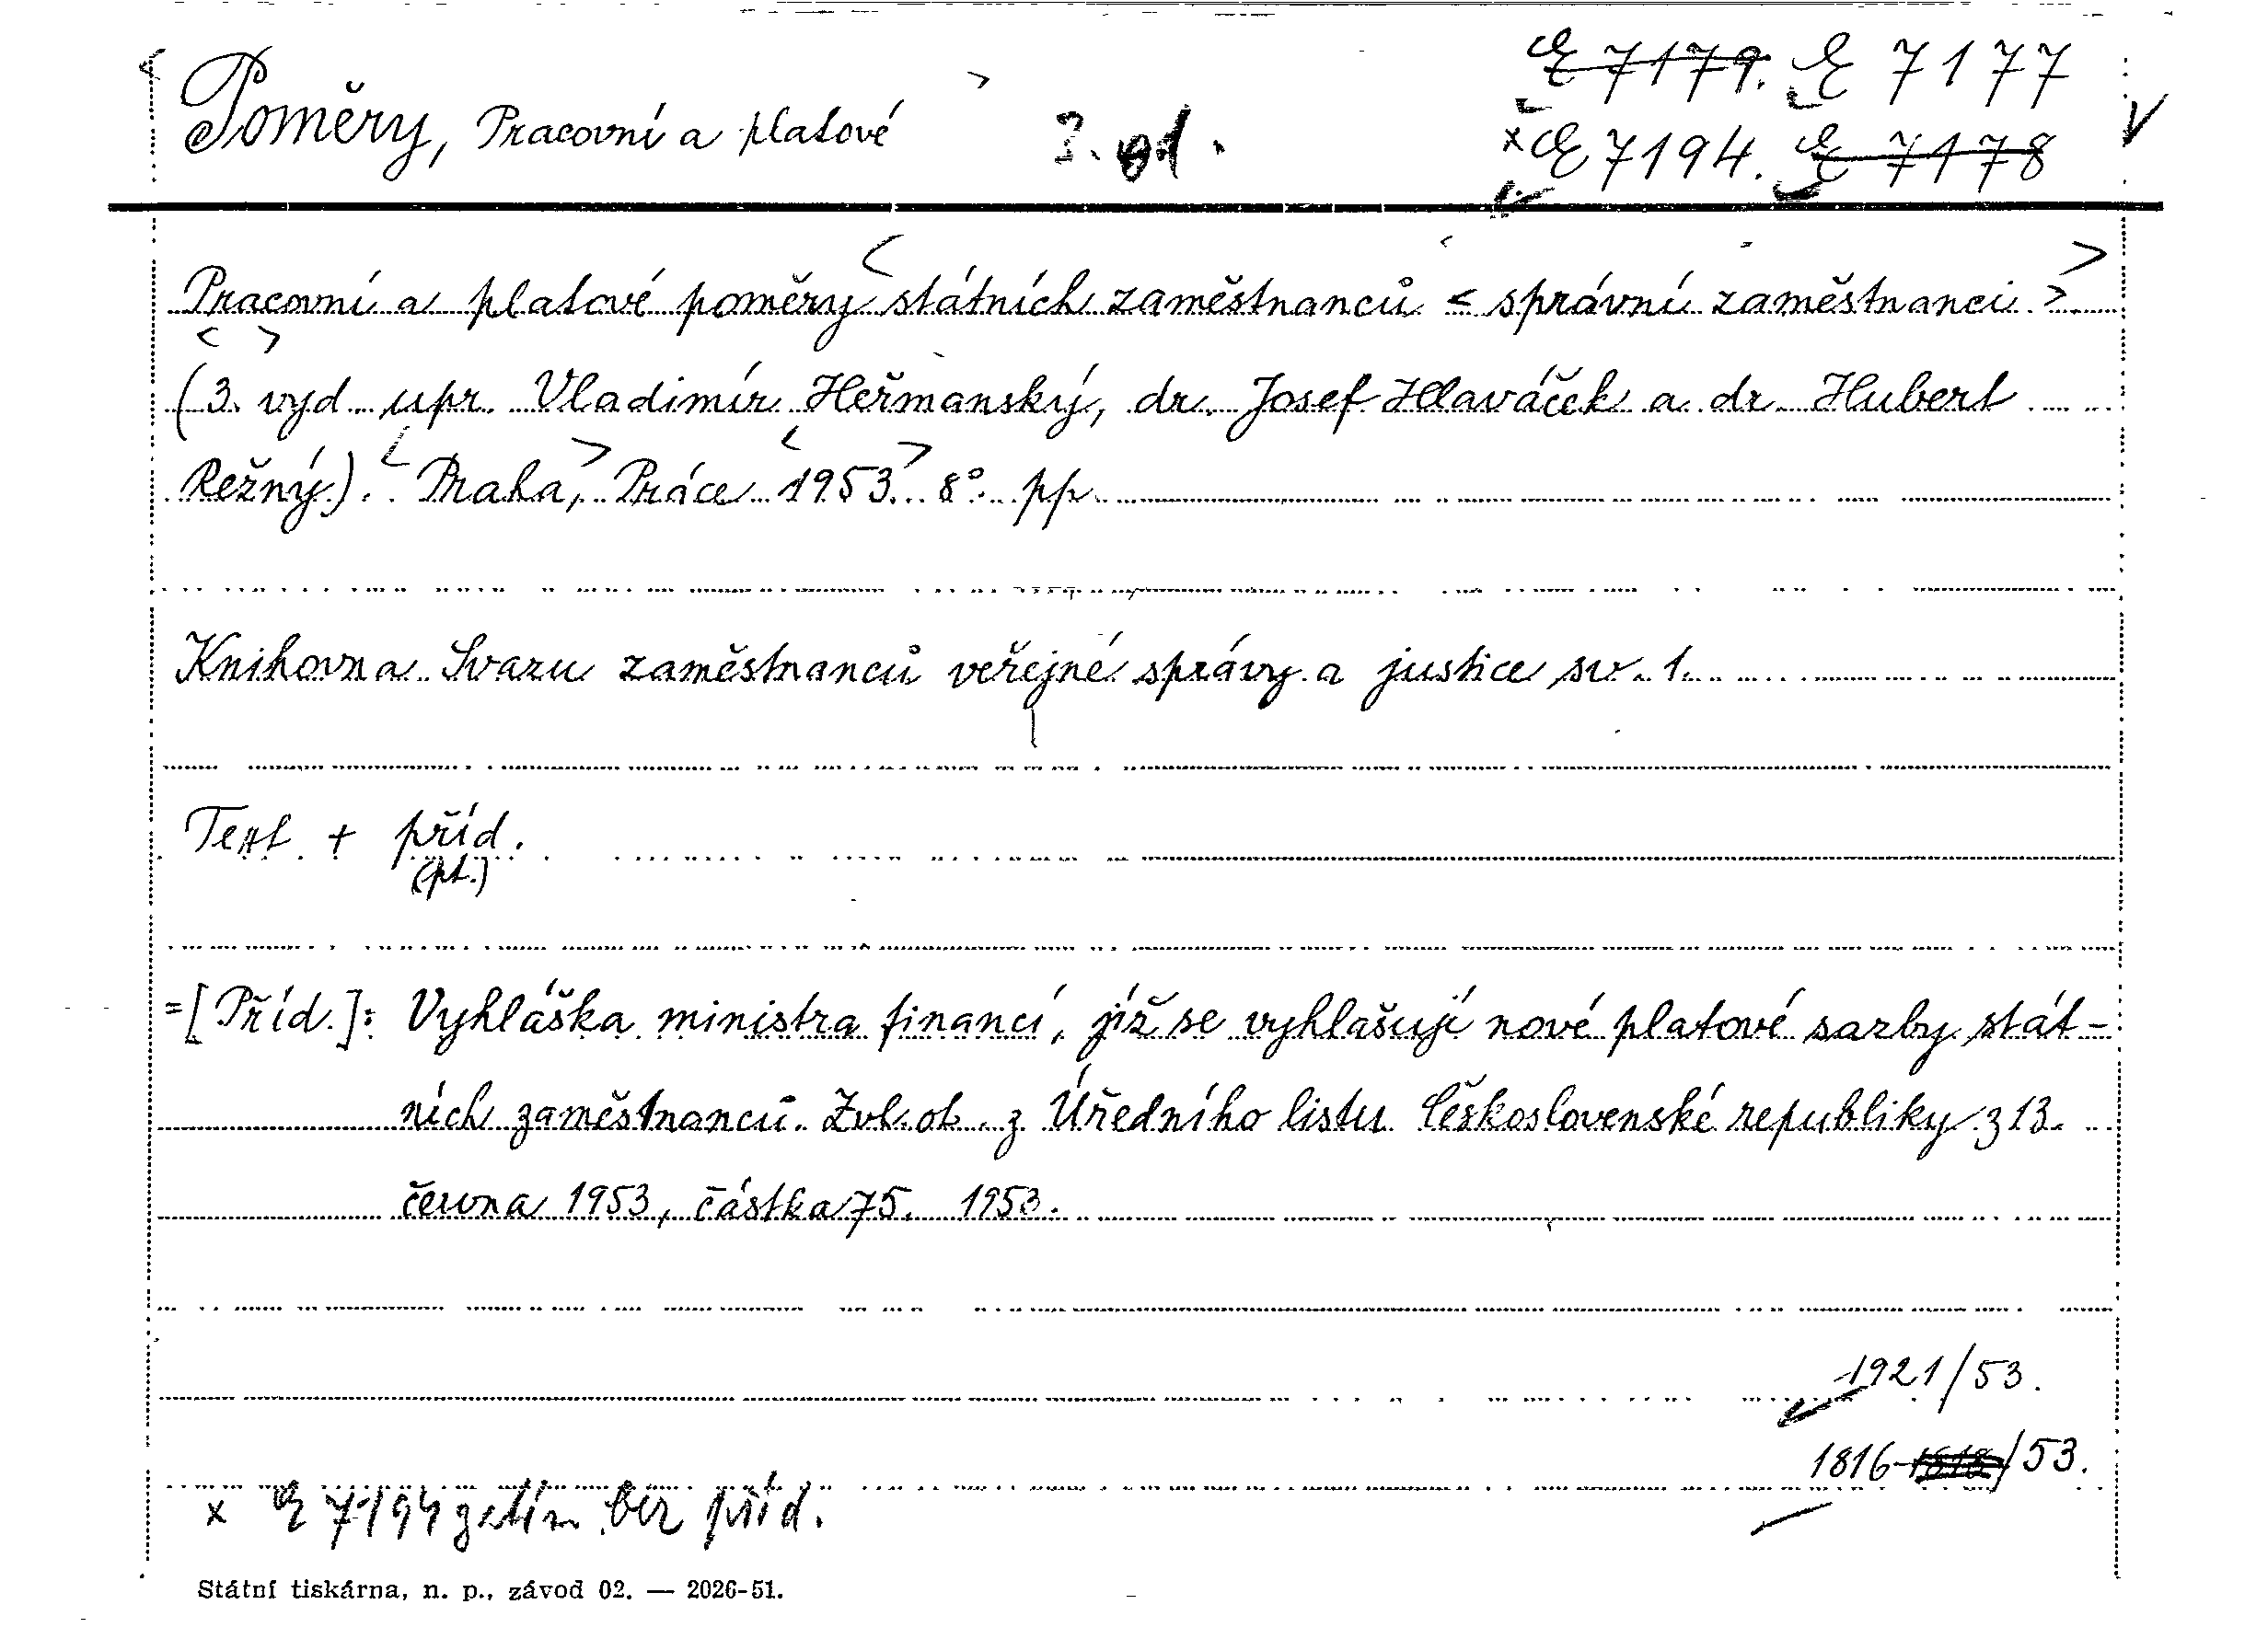 Poměry, Pracovní a platové 3. vyd. E 7179. E 7177
× E 7194. E 7178
Pracovní a platové poměry státních zaměstnanců < správní zaměstnanci >.
(3. vyd. upr. Vladimír Heřmanský, dr. Josef Hlaváček a dr. Hubert
Režný). Praha, Práce 1953. 8°. pp.
Knihovna Svazu zaměstnanců veřejné správy a justice sv. 1.
Text + příd.
(pt.)
=[Příd.]: Vyhláška ministra financí, jíž se vyhlašují nové platové sazby stát-
ních zaměstnanců. Zvl. ot. z Úředního listu Československé republiky z 13.
června 1953, částka 75. 1953.
1921/53.
1816-1818/53.
× E 7194 zatím bez příd.
Státní tiskárna, n. p., závod 02. — 2026-51.